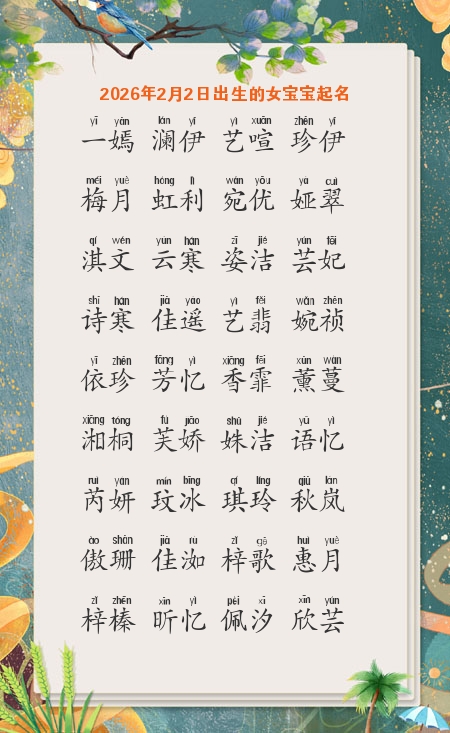 2026年2月2日出生的女宝宝起名
yī yān lán yī yì xuān zhēn yī
一嫣 澜伊 艺喧 珍伊
méi yuè hóng lì wǎn yōu yà cuì
梅月 虹利 宛优 娅翠
qí wén yún hán zī jié yún fēi
淇文 云寒 姿洁 芸妃
shī hán jiā yáo yì fěi wǎn zhēn
诗寒 佳遥 艺翡 婉祯
yī zhēn fāng yì xiāng fēi xūn wàn
依珍 芳忆 香霏 薰蔓
xiāng tóng fú jiāo shū jié yǔ yì
湘桐 芙娇 姝洁 语忆
ruì yán mín bīng qí líng qiū lán
芮妍 玟冰 琪玲 秋岚
ào shān jiā rù zǐ gē huì yuè
傲珊 佳洳 梓歌 惠月
zǐ zhēn xīn yì pèi xī xīn yún
梓榛 昕忆 佩汐 欣芸